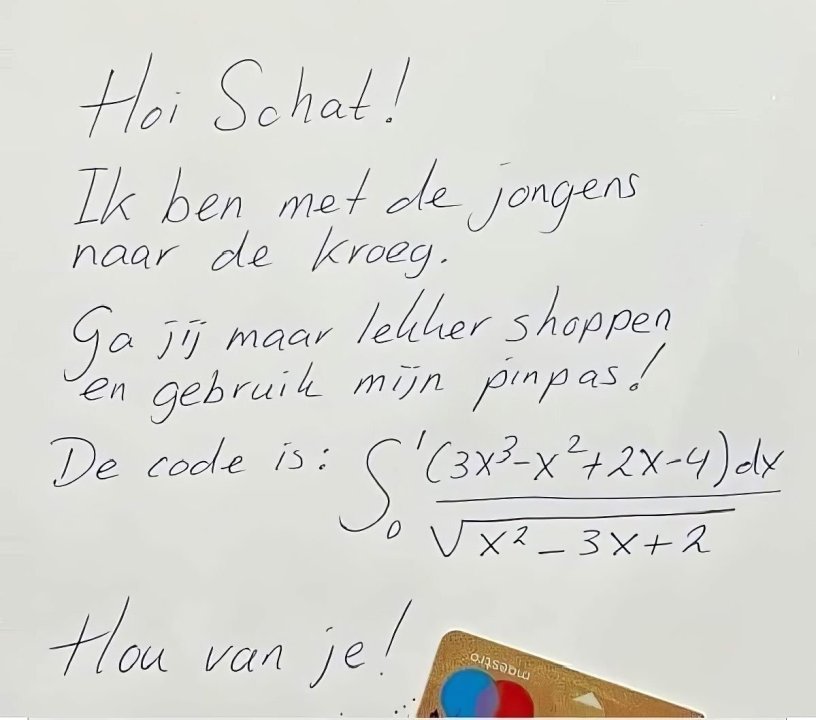 Hoi Schat!
Ik ben met de jongens
naar de kroeg.
Ga jij maar lekker shoppen
en gebruik mijn pinpas!
De code is: ∫₀¹ (3x³-x²+2x-4)dx / √(x²-3x+2)
Hou van je!
maestro